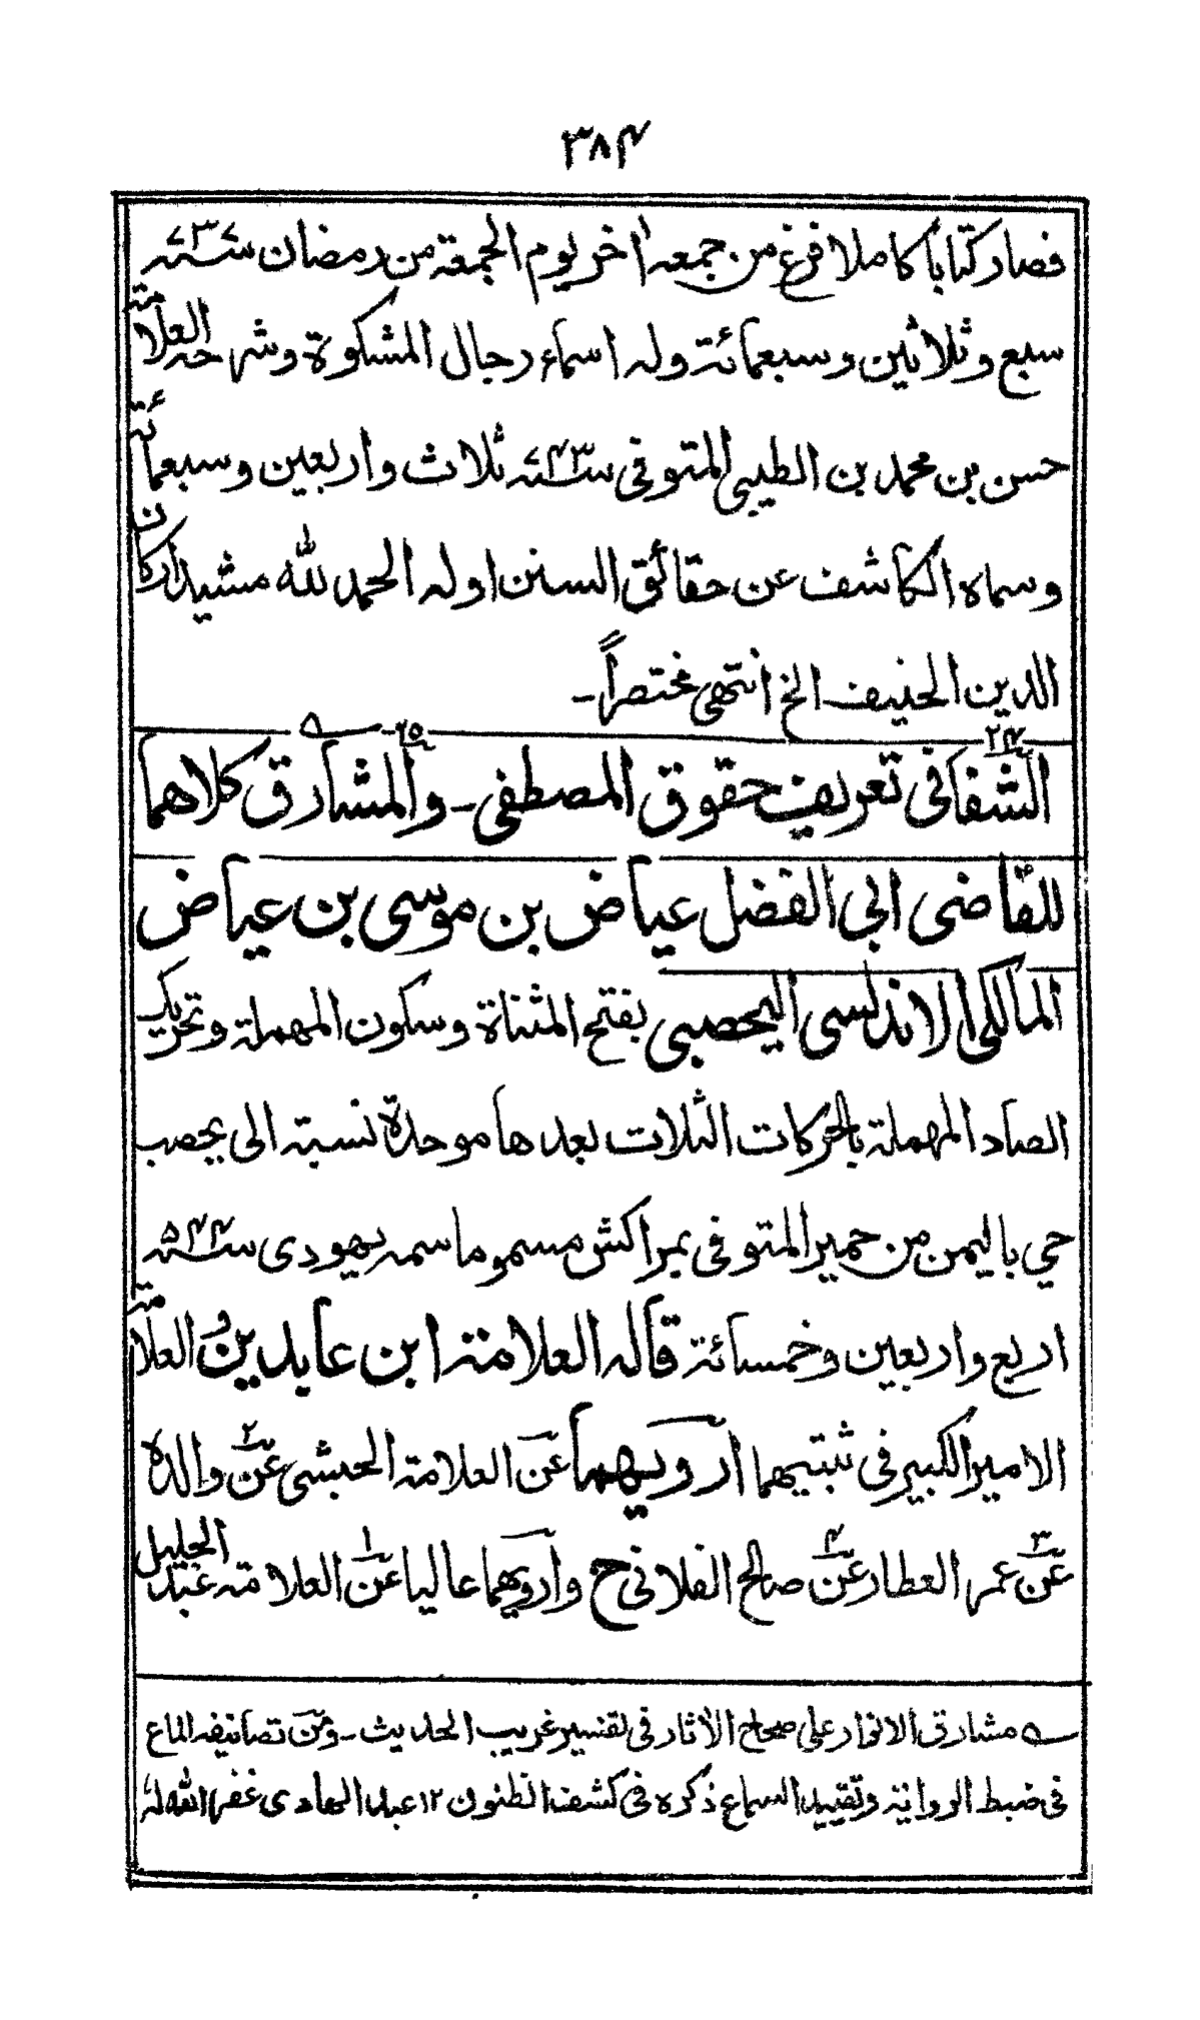 ٣٨٤
فصار كتابا كاملا فرغ من جمعه اخر يوم الجمعة من رمضان سنة ٧٣٧
سبع وثلاثين وسبعمائة وله اسماء رجال المشكوة وشرحه العلامة
حسن بن محمد بن الطيبي المتوفى سنة ٧٤٣ ثلاث واربعين وسبعمائة
وسماه الكاشف عن حقائق السنن اوله الحمد لله مشيد اركان
الدين الحنيف الخ انتهى مختصراً-
٢٤ الشفا في تعريف حقوق المصطفى - ٢٥ والمشارق ه كلاهما
للقاضى ابي الفضل عياض بن موسى بن عياض
المالكي الاندلسي اليحصبي بفتح المثناة وسكون المهملة وتحريك
الصاد المهملة بالحركات الثلاث بعدها موحدة نسبة الى يحصب
حي باليمن من حمير المتوفى بمراكش مسموما سمه يهودى سنة ٥٤٤
اربع واربعين وخمسمائة قاله العلامة ابن عابدين والعلامة
الامير الكبير في ثبتيهما ارويهما عن العلامة الحبشى عن ٢ والده
عن ٣ عمر العطار عن ٤ صالح الفلاني ح وارويهما عاليا عن ١ العلامة عبد الجليل
ه مشارق الانوار على صحاح الأثار في تفسير غريب الحديث - ومن تصانيفه الماع
في ضبط الرواية وتقييد السماع ذكره في كشف الظنون ١٢ عبد الهادى غفر الله له